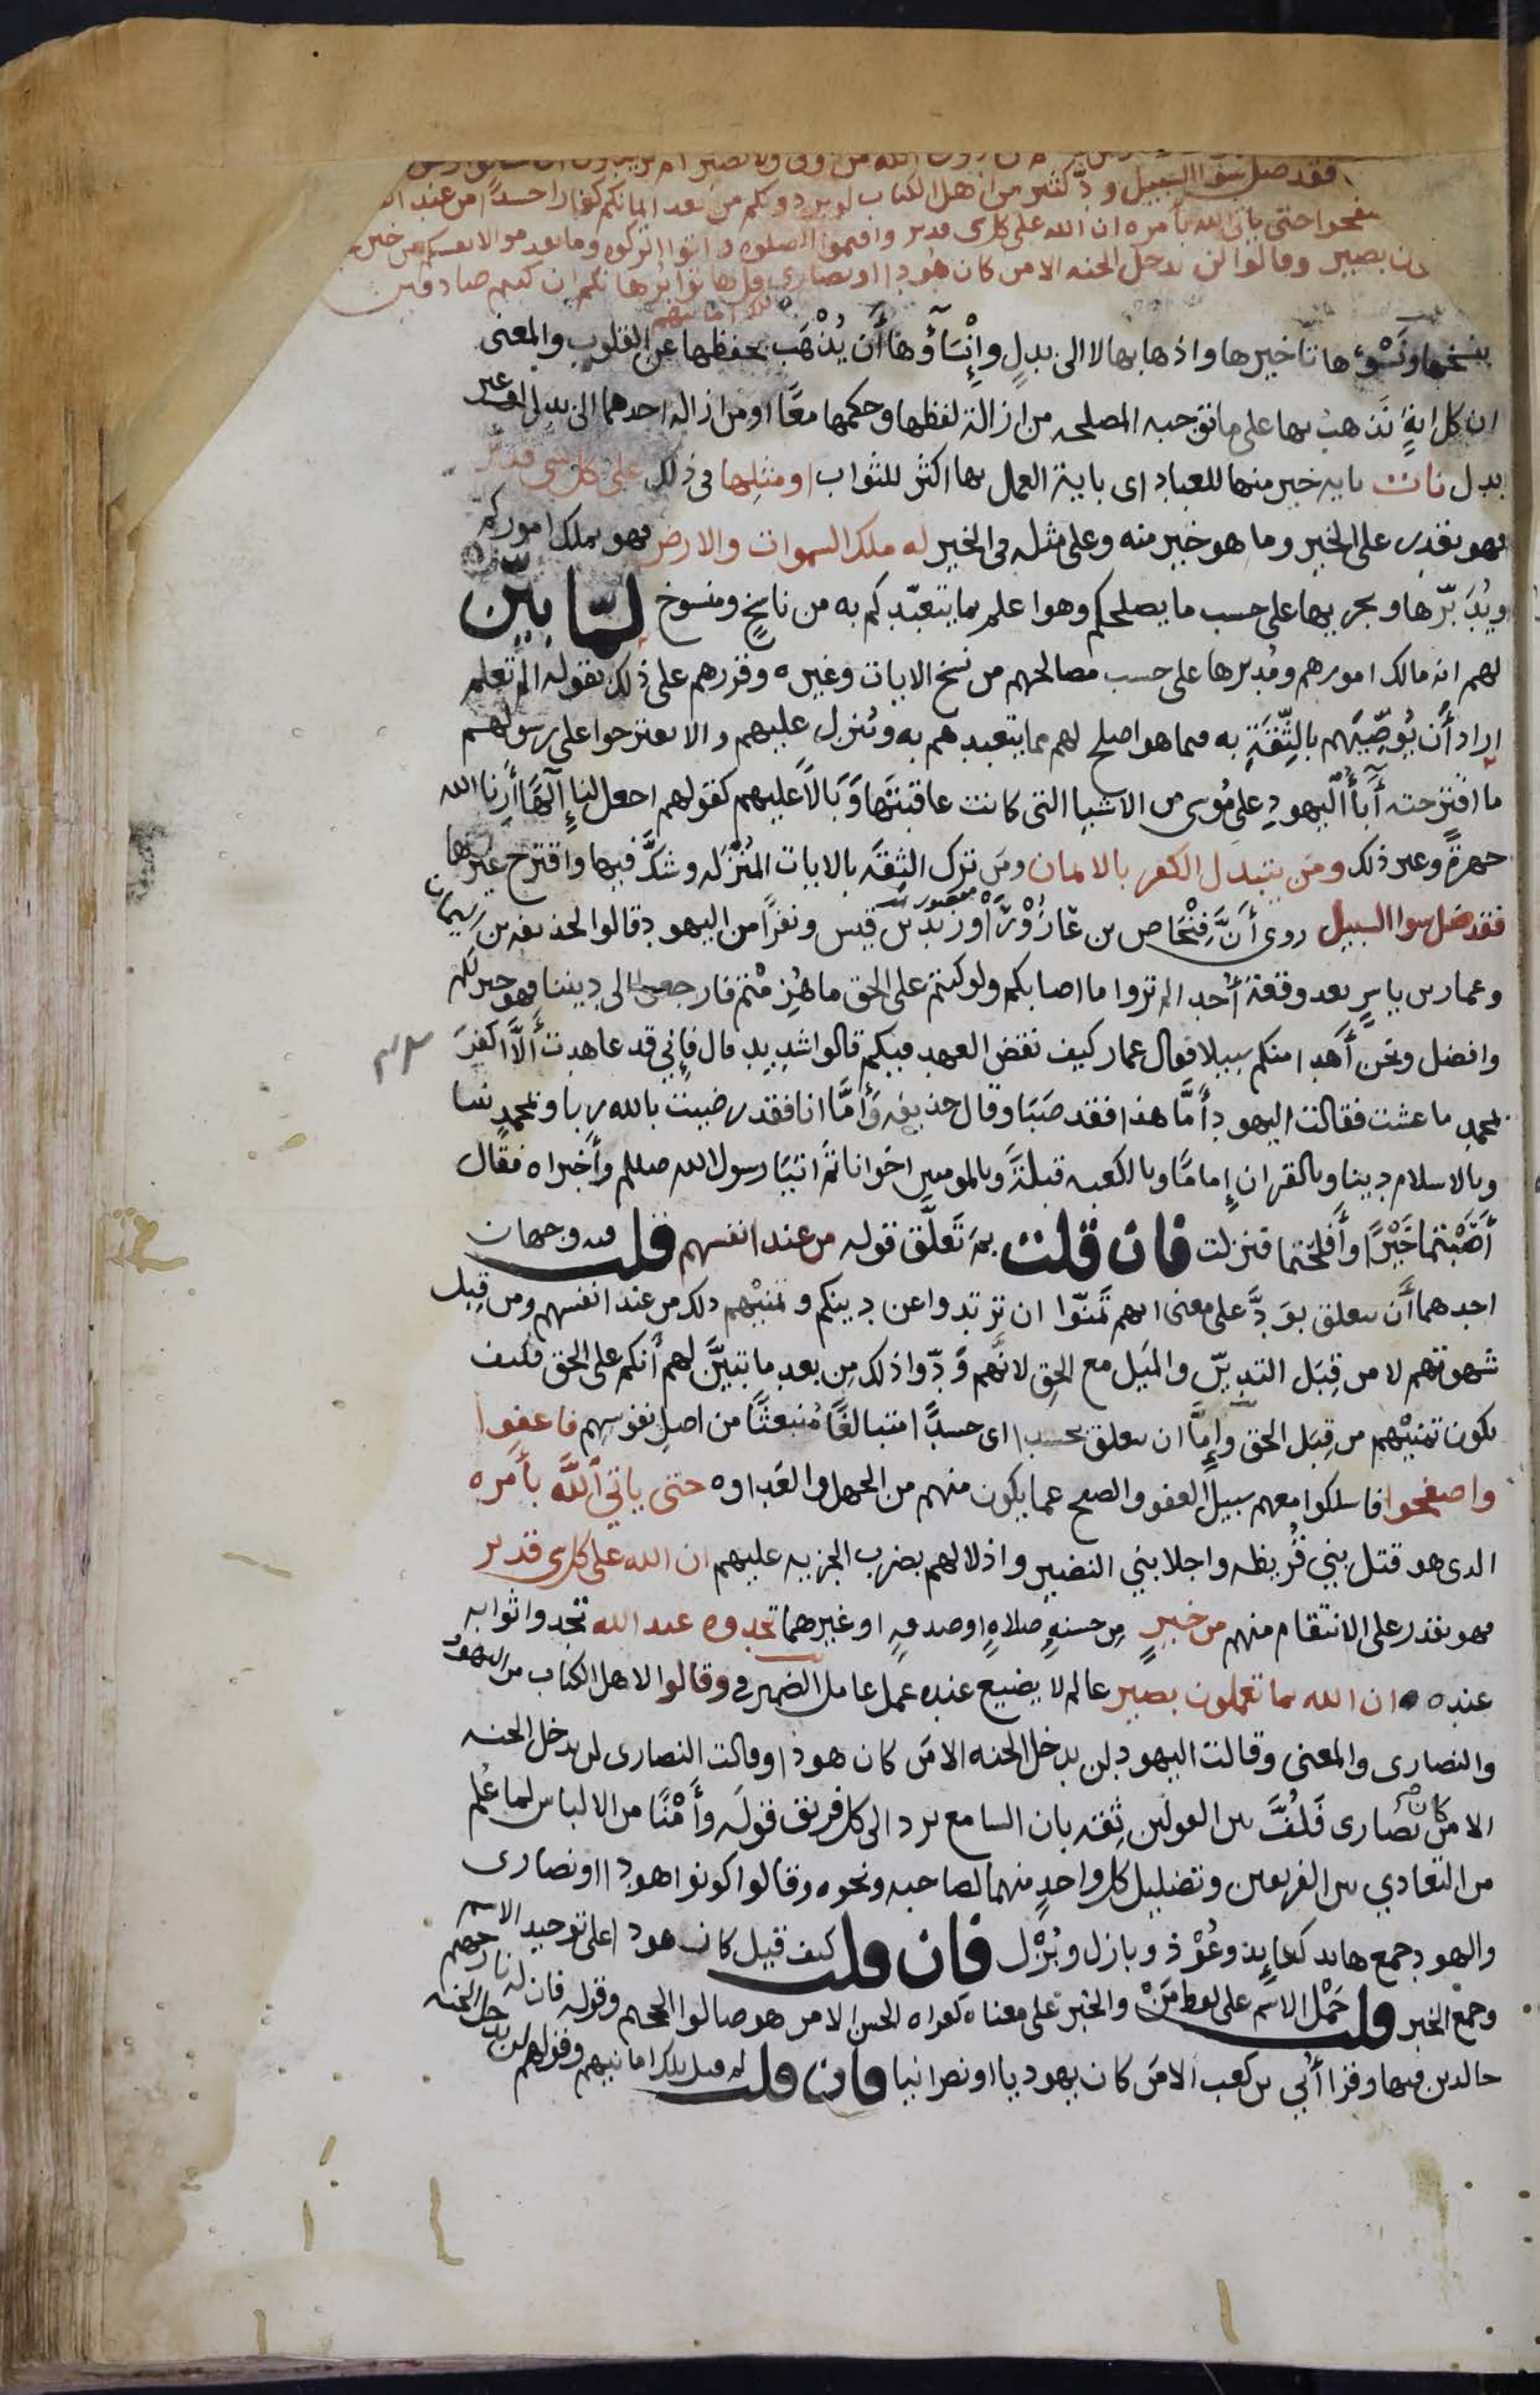 من دون الله من ولي ولا نصير ام تريدون ان تسالوا رسو
فقد ضل سوا السبيل ود كثير من اهل الكتاب لو يردونكم من بعد ايمانكم كفارا حسدا من عند ا
صفحوا حتى ياتي الله بأمره ان الله على كل شى قدير واقيموا الصلوه واتوا الزكوه وما تقدموا لانفسكم من خير
ن بصير وقالوا لن يدخل الجنه الا من كان هودا او نصارى قل هاتوا برهانكم ان كنتم صادقين
تلك امانيهم
ينسخها ونَسْوءها تاخيرها واذهابها لا الى بدلٍ وإِنْسَآؤُها أَن يُذْهَب بحفظها عن القلوب والمعنى
ان كل ايةٍ نَذهب بها على ما توجبه المصلحه من ازالة لفظها وحكمها معًا او من ازاله احدهما الى بدل او غير
بدل نات بايه خير منها للعباد اى باية العمل بها اكثر للثواب او مثلِها فى ذلك على كل شى قدير
فهو يقدر على الخير وما هو خير منه وعلى مثله فى الخير له ملك السموات والارض فهو يملك اموركم
ويُدَبّرها ويجريها على حسب ما يصلحكم وهو اعلم بما يتعبّدكم به من ناسخٍ ومنسوخ لمّا بيّن
لهم انه مالك امورهم ومُدبرها على حسب مصالحهم من نسخ الايات وغيره وقررهم على ذلك بقوله الم تعلم
اراد أَن يُوصّيَهم بالثِّقَةِ به فيما هو اصلح لهم مما يتعبدهم به ويُنزل عليهم والا يقترحوا على رسولهم
ما اقترحته أَبآءُ اليهودِ على مُوسى من الاشيا التى كانت عاقبتها وَبَالًا عليهم كقولهم اجعل لنا إِلٰهًا أَرِنا الله
جهرةً وغير ذلك ومَن يتبدل الكفر بالايمان ومَن ترك الثِقَه بالايات المُنَزَّله وشكَّ فيها واقترح غيرها
فقد ضل سوا السبيل روى أَنَّ فِنْحَاص بن عَازُوْرَآءَ وزيد بن قيس ونفرًا من اليهود قالوا لحذيفه بن اليمان
وعمار بن ياسرٍ بعد وقعة أُحد الم تروا ما اصابكم ولو كنتم على الحق ما هُزِمْتم فارجعوا الى ديننا فهو خير لكم
وافضل ونحن أَهدا منكم سبيلا فقال عمار كيف نقض العهد فيكم قالوا شديد قال فإِنّي قد عاهدت أَلَّا اكفرَ
بمحمدٍ ما عشت فقالت اليهود أَمَّا هذا فقد صَبَا وقال حذيفه وأَمَّا انا فقد رضيت بالله ربا وبمحمدٍ نبيا
وبالاسلام دينا وبالقران إِمامًا وبالكعبه قبلةً وبالمومنين اخوانا ثم اتيَا رسول الله صلعم وأَخبراه فقال
أَصَبْتما خَيْرًا وأَفلحتما فنزلت فان قلت بمَ تَعلَّق قوله من عند انفسهم قلت فيه وجهان
احدهما أَن يتعلق بوَدَّ على معنى انهم تمنّوا ان ترتدوا عن دينكم وتمنِّيهم ذلك من عند انفسهم ومن قِبل
شهوتهم لا من قِبَل التديّن والمَيل مع الحق لانَّهم وَدّوا ذلك مِن بعد ما تبيَّن لهم أَنكم على الحق فكيف
يكون تمنيهم من قِبَل الحق وإِمَّا ان يتعلق بحسدا اى حسدًا متبالغًا مُنبعثًا من اصل نفوسهم فاعفوا
واصفحوا فاسلكوا معهم سبيل العفو والصفح عما يكون منهم من الجهل والعَداوه حتى ياتيَ اللهُ بأَمره
الذى هو قتل بني قُريظه واجلا بني النضير واذلالهم بضرب الجزيه عليهم ان الله على كل شى قدير
فهو يقدر على الانتقام منهم من خيرٍ مِن حسنهٍ صلاهٍ او صدقهٍ او غيرهما تجدوه عند الله تجدوا ثوابه
عنده ان الله بما تعملون بصير عالم لا يضيع عنده عمل عامل الضمير فى وقالوا لاهل الكتاب من اليهود
والنصارى والمعنى وقالت اليهود لن يدخل الجنه الا مَن كان هودا وقالت النصارى لن يدخل الجنه
الا من كان نصارى فَلُفَّ بين القولَين ثِقَه بان السامع يرد الى كل فريق قولَه وأَمْنًا من الالباس لما عُلم
من التعادي بين الفريقين وتضليل كل واحدٍ منهما لصاحبه ونحوه وقالوا كونوا هودا او نصارى
والهود جمع هايد كعايذ وعُوْذ وبازل وبُزْل فان قلت كيف قيل كان هودا على توحيد الاسم
وجمع الخبر قلت حَمْل الاسم على لفظ مَنْ والخبر على معناه كقراه الحسن الا من هو صالوا الجحيم وقوله فان له نار جهنم
خالدين فيها وقرا أُبي بن كعب الا مَن كان يهوديا او نصرانيا فان قلت لم قيل تلك امانيهم وقولهم لن يدخل الجنه